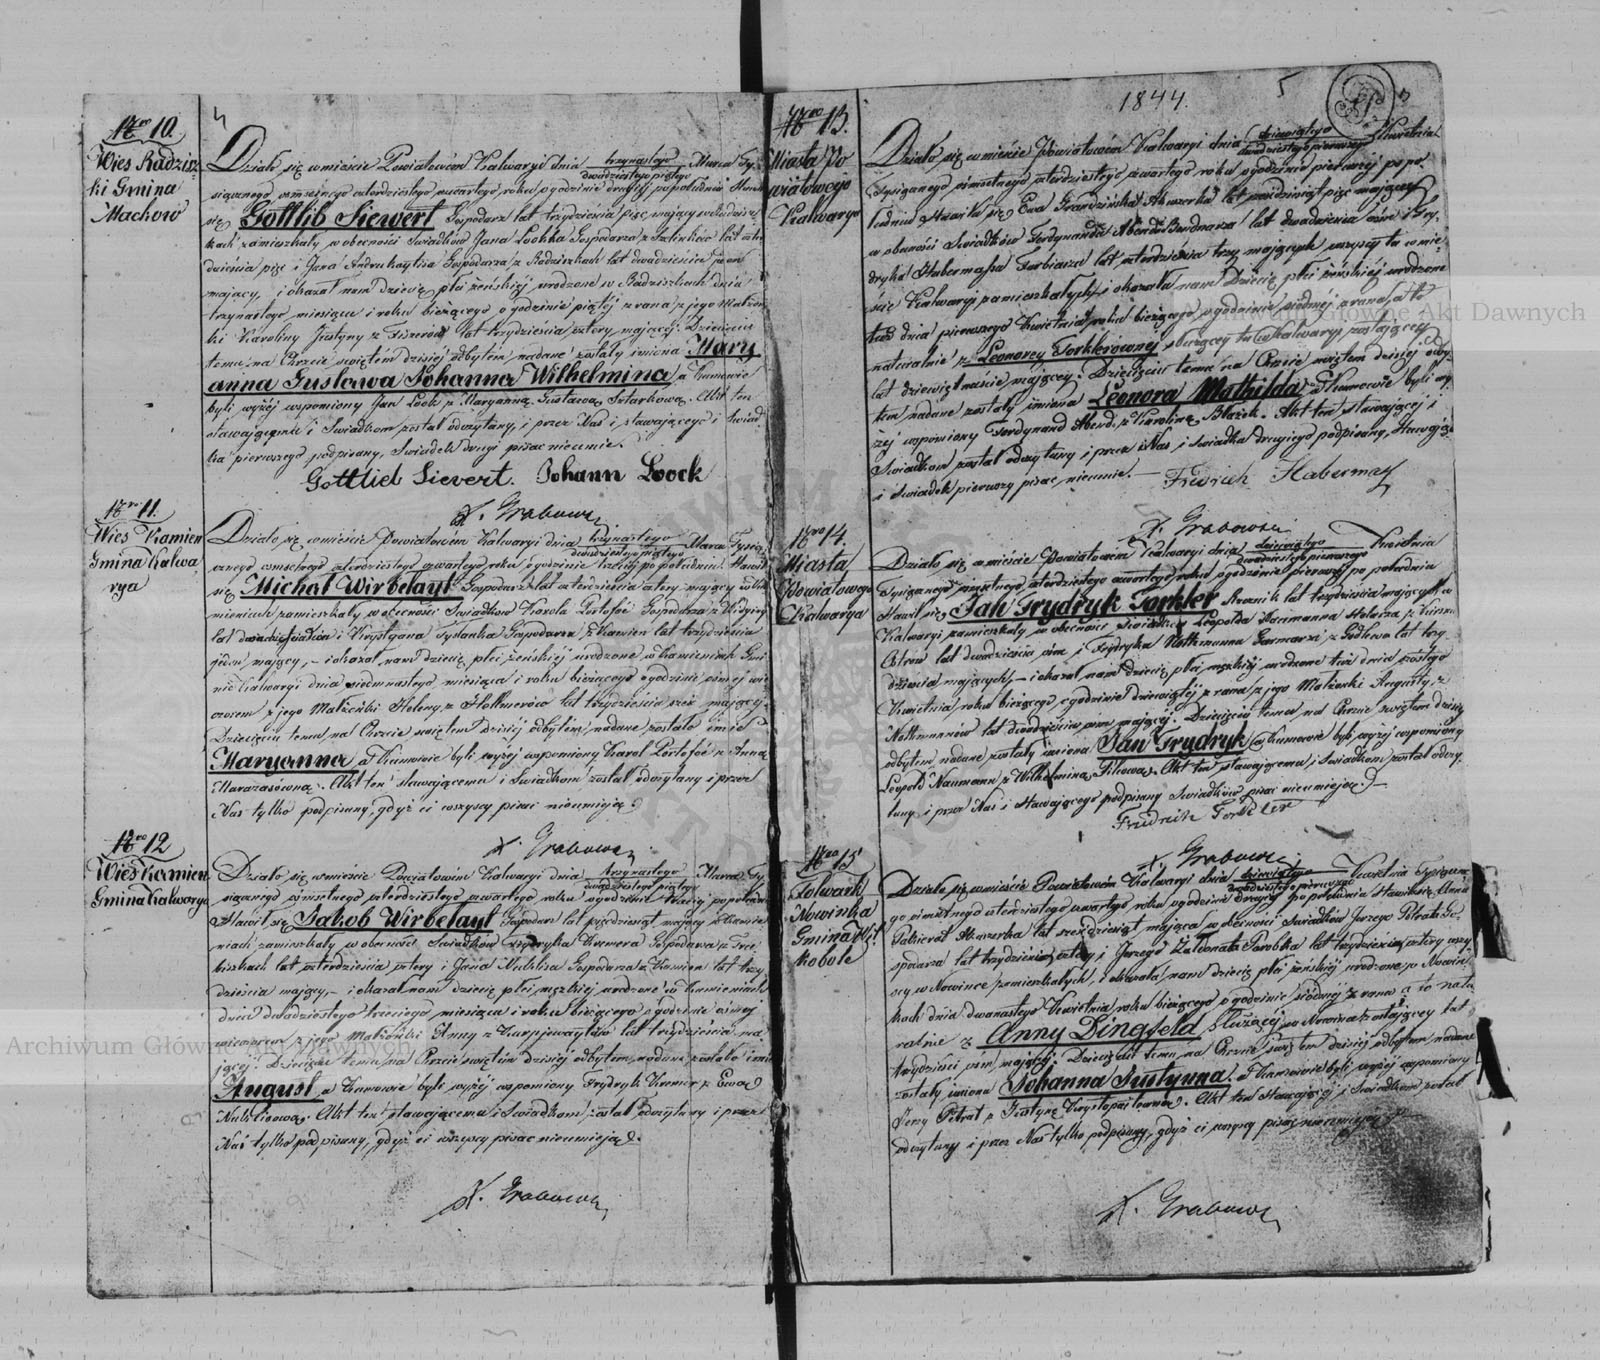 4
Nro 10.
Wies Radzisz
ki Gmina
Machow
Działo się w mieście Powiatowem Kalwaryi dnia trzynastego / dwudziestego piątego Marca Ty-
siącznego ośmsetnego czterdziestego czwartego roku o godzinie drugiej po południu Stawił
się Gottlib Siewert Gospodarz lat trzydzieścia pięć mający w Radzisz
kach zamieszkały w obecności Świadków Jana Loocka Gospodarza z lat czter
dzieścia pięć i Jana Gospodarza z Radziszkach lat dwadzieścia
mający, i okazał nam Dziecię płci żeńskiej urodzone w Radziszkach dnia
trzynastego miesiąca i roku bieżącego o godzinie piątej z rana z jego Małżon
ki Karoliny Justyny z lat trzydzieścia cztery mającej. Dziecięciu
temu na Chrzcie świętem dzisiej odbytem nadane zostały imiona Mary
anna Gustawa Johanna Wilhelmina a Kumowie
byli wyżej wspomiony Jan Look z Maryanną Gustawą Akt ten
stawającemu i Świadkom został odczytany, i przez Nas i stawającego i Świad
ka pierwszego podpisany, Świadek drugi pisać nieumie.
Gottlieb Sievert. Johann Loock
X. Grabows
Nro 11.
Wies Kamien
Gmina Kalwa
rya
Działo się w mieście Powiatowem Kalwaryi dnia trzynastego / dwudziestego piątego Marca Tysią
cznego ośmsetnego czterdziestego czwartego roku o godzinie trzeciej po południu. Stawił
się Michał Wirbelayt Gospodarz lat czterdzieścia cztery mający w Ka
mieniach zamieszkały w obecności Świadków Karola Gospodarza z
lat i Krystyana Gospodarza z Kamien lat trzydzieścia
jeden mający, – i okazał nam dziecię płci żeńskiej urodzone w Kamieniach Gmi
nie Kalwaryi dnia siedmnastego miesiąca i roku bieżącego o godzinie ósmej wie
czorem z jego Małżonki Heleny z lat trzydzieścia sześć mającej.
Dziecięciu temu na Chrzcie świętem dzisiej odbytem, nadane zostało imie
Maryanna a Kumowie byli wyżej wspomiony Karol z Anną
Akt ten stawającemu i Świadkom został odczytany i przez
Nas tylko podpisany, gdyż ci wszyscy pisać nieumieją.
X. Grabows
Nro 12
Wies Kamien
Gmina Kalwarya
Działo się w mieście Powiatowem Kalwaryi dnia trzynastego / dwudziestego piątego Marca Ty-
siącznego ośmsetnego czterdziestego czwartego roku o godzinie trzeciej po południu
Stawił się Jakob Wirbelayt Gospodarz lat pięćdziesiąt mający w Kamie
niach zamieszkały w obecności Świadków Frydryka Kremera Gospodarza z
lat czterdzieścia cztery i Jana Gospodarza z Kamien lat trzy
dzieścia mający, – i okazał nam dziecię płci męzkiej urodzone w Kamieniach
dnia dwudziestego trzeciego miesiąca i roku bieżącego o godzinie ósmej
wieczorem z jego Małżonki Anny z lat trzydzieścia ma
jącej. Dziecięciu temu na Chrzcie świętem dzisiej odbytem nadane zostało imie
August, a Kumowie byli wyżej wspomiony Frydryk Kremer z Ewą
Akt ten stawającemu i Świadkom został odczytany i przez
Nas tylko podpisany, gdyż ci wszyscy pisać nieumieją.
X. Grabows
1844.
5
Nro 13.
Miasta Po
wiatowego
Kalwarya
Działo się w mieście Powiatowem Kalwaryi dnia dziewiątego / dwudziestego pierwszego Kwietnia
Tysiącznego ośmsetnego czterdziestego czwartego roku o godzinie pierwszej po po
łudniu Stawiła się Ewa Akuszerka lat pięćdziesiąt pięć mająca
w obecności Świadków Ferdynanda Abend Bednarza lat dwadzieścia ośm i Fry
dryka Habermann Farbiarza lat czterdzieścia trzy mających wszyscy tu w mie
ście Kalwaryi zamieszkałych, i okazała nam Dziecię płci żeńskiej urodzone
tu dnia pierwszego Kwietnia roku bieżącego o godzinie siódmej z rana, a to
naturalnie z Leonorey Torklerowney służącey tu w Kalwaryi zostającey
lat dziewiętnaście mającey. Dziecięciu temu na Chrzcie świętem dzisiej odby-
tem nadane zostały imiona Leonora Mathilda a Kumowie byli wy
żej wspomiony Ferdynand Abend z Karoliną Blazek. Akt ten stawającej i
Świadkom został odczytany i przez Nas i Świadka drugiego podpisany, Stawająca
i Świadek pierwszy pisać nieumie. — Fridrich Haberman
X. Grabows
Nro 14.
Miasta
Powiatowego
Kalwarya
Działo się w mieście Powiatowem Kalwaryi dnia dziewiątego / dwudziestego pierwszego Kwietnia
Tysiącznego ośmsetnego czterdziestego czwartego roku o godzinie pierwszej po południu
Stawił się Jan Frydryk Torkler lat trzydzieścia mający w
Kalwaryi zamieszkały, w obecności Świadków Leopolda Naumanna
lat dwadzieścia ośm i Frydryka Nothmanna Garncarza z Godlewa lat trzy
dzieścia mających, – i okazał nam dziecię płci męzkiej urodzone tu dnia szóstego
Kwietnia roku bieżącego o godzinie dziewiątej z rana z jego Małżonki Augusty z
Nothmannów lat dwadzieścia ośm mającej. Dziecięciu temu na Chrzcie świętem dzisiej
odbytem nadane zostały imiona Jan Frydryk a Kumowie byli wyżej wspomiony
Leopold Naumann z Wilhelminą Akt ten stawającemu i Świadkom został odczy
tany i przez Nas i stawającego podpisany Świadków pisać nieumieją. —
Fridrich Torkler
X. Grabows
Nro 15
Folwark
Nowinka
Gmina Wił
kobole
Działo się w mieście Powiatowem Kalwaryi dnia dziewiątego / dwudziestego pierwszego Kwietnia Tysiączne
go ośmsetnego czterdziestego czwartego roku o godzinie drugiej po południu Stawiła się Anna
Akuszerka lat sześćdziesiąt mająca w obecności Świadków Jerzego Petrata Go
spodarza lat trzydzieścia cztery i Jerzego Parobka lat trzydzieścia cztery wszy
scy w Nowince zamieszkałych, i okazała nam dziecię płci żeńskiej urodzone w Nowin
kach dnia dwunastego Kwietnia roku bieżącego o godzinie siódmej z rana a to natu
ralnie z Anny Dingfeld Służącej w Nowince zostającey lat
trzydzieści ośm mającej. Dziecięciu temu na Chrzcie świętem dzisiej odbytem nadane
zostały imiona Johanna Justynna. a Kumowie byli wyżej wspomiony
Jerzy Petrat z Justyną Akt ten Stawającej i Świadkom został
odczytany i przez Nas tylko podpisany, gdyż ci wszyscy pisać nieumieją
X. Grabows
Archiwum Główne Akt Dawnych
Archiwum Główne Akt Dawnych